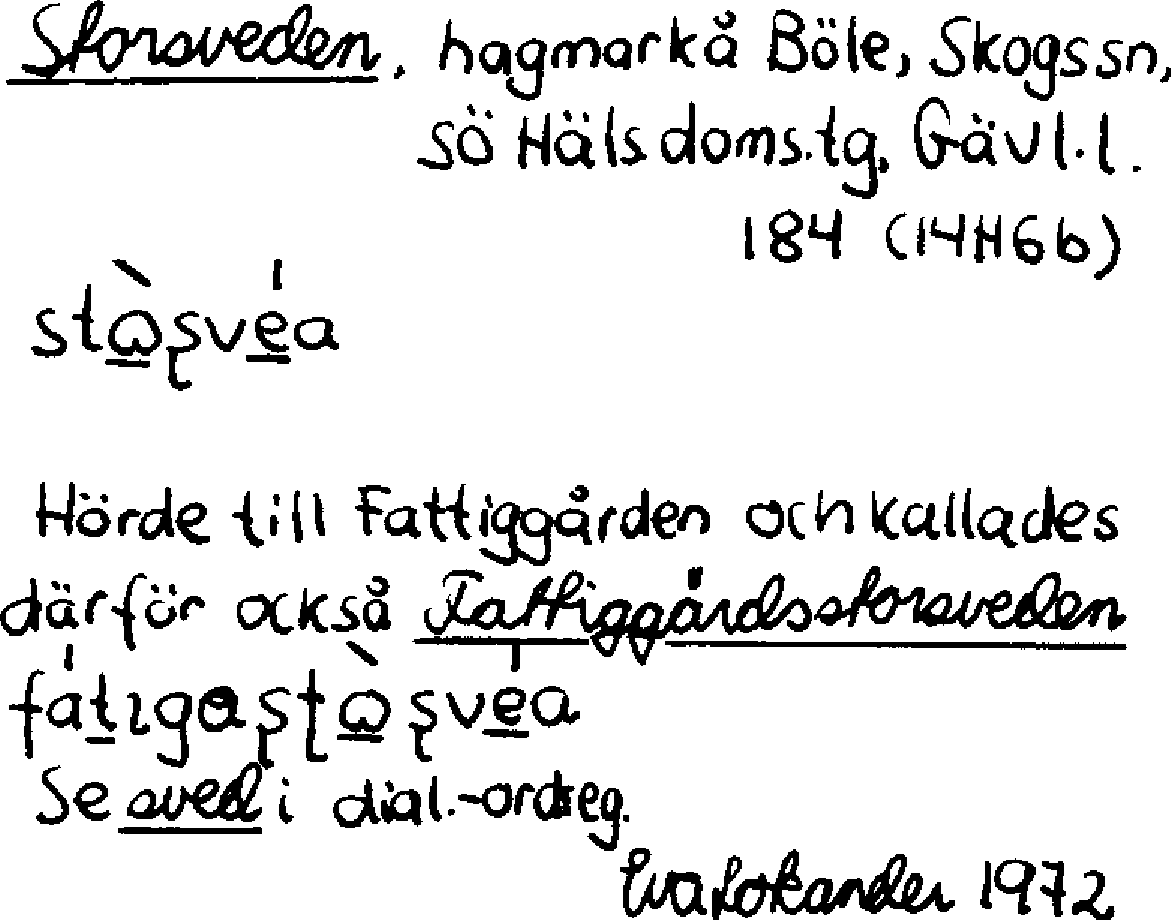 Storsveden, hagmark å Böle, Skogs sn,
sö Häls doms.tg, Gävl.l.
184 (14H6b)
stɷ̲̀ʂve̲̍a
Hörde till Fattiggården och kallades
därför också Fattiggårdsstorsveden
fát̲ıgaʂʈɷ̲̀ʂve̲̍a
Se sved i dial.-ordreg.
Eva Lokander 1972